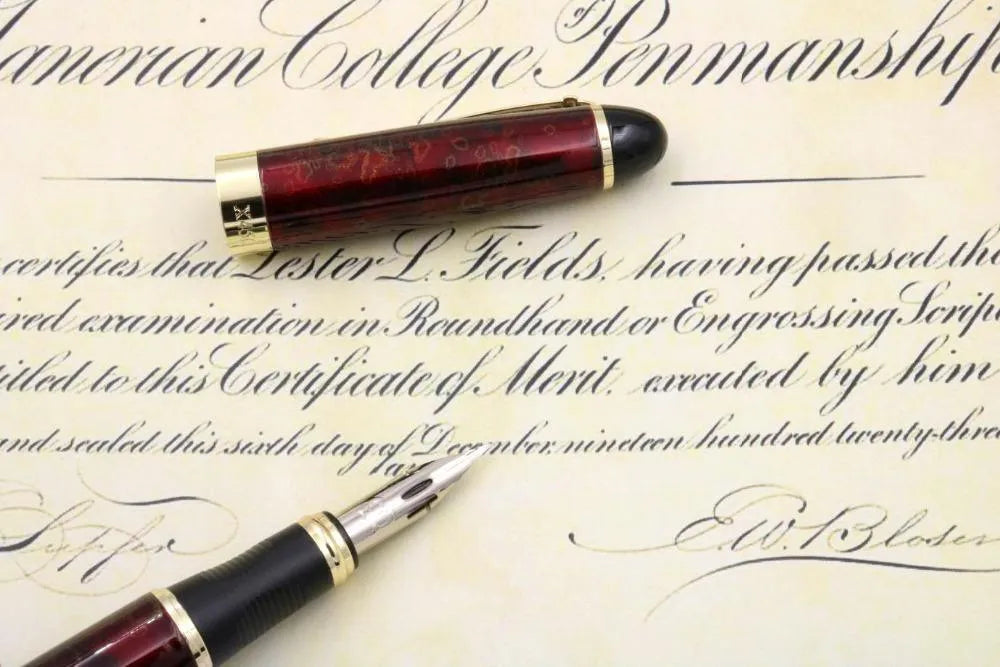 Zanerian College of Penmanship
X450
certifies that Lester L. Fields, having passed the
ired examination in Roundhand or Engrossing Script
itled to this Certificate of Merit, executed by him
and sealed this sixth day of December, nineteen hundred twenty-three
Lupfer
E. W. Bloser